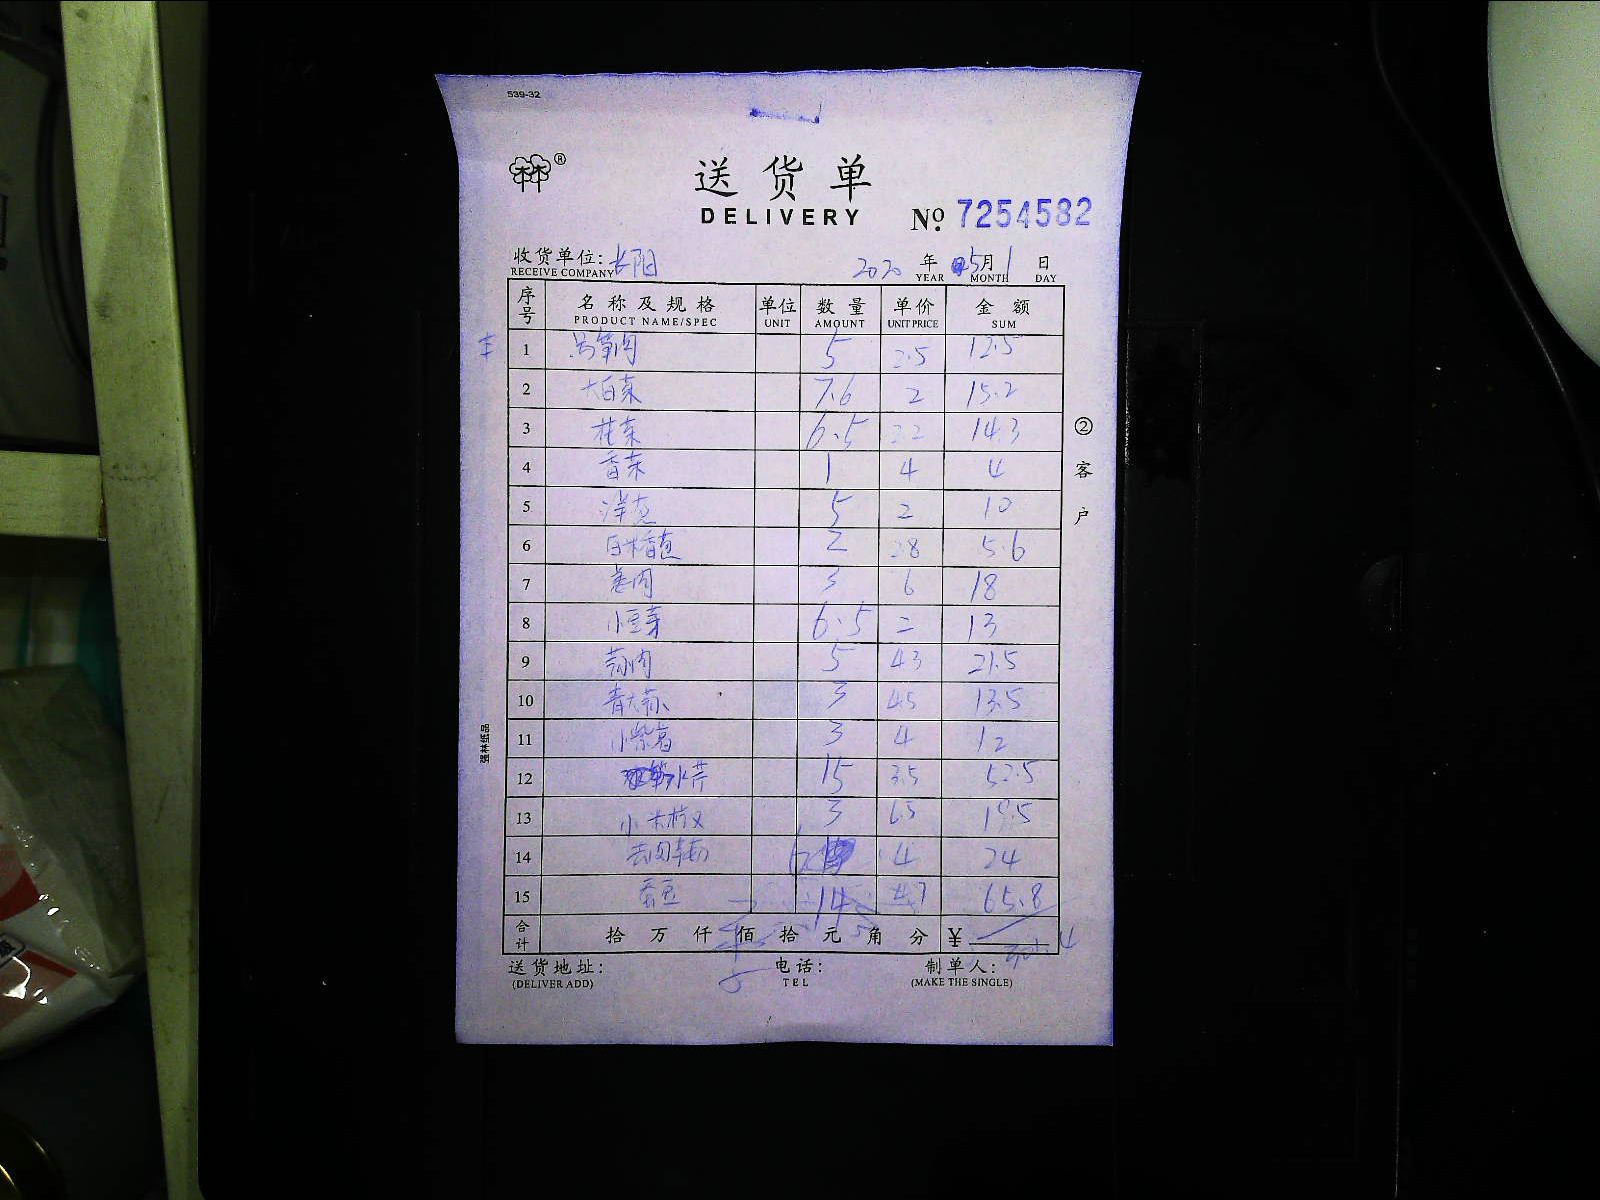 539-32
林®
送货单
DELIVERY
No. 7254582
收货单位: 长阳 2020 年 5月 1 日
RECEIVE COMPANY YEAR MONTH DAY
序号 名称及规格 单位 数量 单价 金额
PRODUCT NAME/SPEC UNIT AMOUNT UNIT PRICE SUM
1 莴笋肉 5 2.5 12.5
2 大白菜 7.6 2 15.2
3 花菜 6.5 2.2 14.3
4 香菜 1 4 4
5 洋葱 5 2 10
6 白米香葱 2 2.8 5.6
7 葱肉 3 6 18
8 小豆芽 6.5 2 13
9 蒜肉 5 4.3 21.5
10 青大蒜 3 4.5 13.5
11 小紫葛 3 4 12
12 水芹 15 3.5 52.5
13 小米椒 3 6.5 19.5
14 6 4 24
15 蚕豆 14 4.7 65.8
合计 拾 万 仟 佰 拾 元 角 分 ¥
送货地址: 电话: 制单人:
(DELIVER ADD) TEL (MAKE THE SINGLE)
②客户
强林纸品